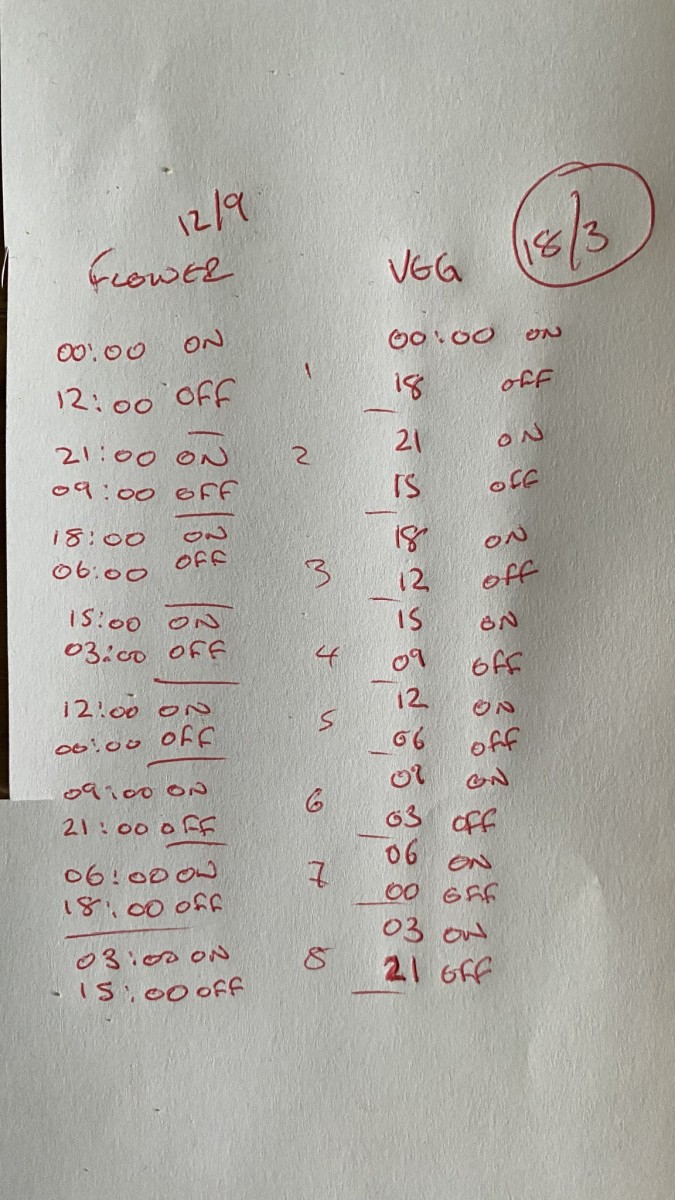 12/9
FLOWER
00:00 ON
12:00 OFF
21:00 ON
09:00 OFF
18:00 ON
06:00 OFF
15:00 ON
03:00 OFF
12:00 ON
00:00 OFF
09:00 ON
21:00 OFF
06:00 ON
18:00 OFF
03:00 ON
15:00 OFF
1
2
3
4
5
6
7
8
18/3
VEG
00:00 ON
18 OFF
21 ON
15 OFF
18 ON
12 OFF
15 ON
09 OFF
12 ON
06 OFF
09 ON
03 OFF
06 ON
00 OFF
03 ON
21 OFF